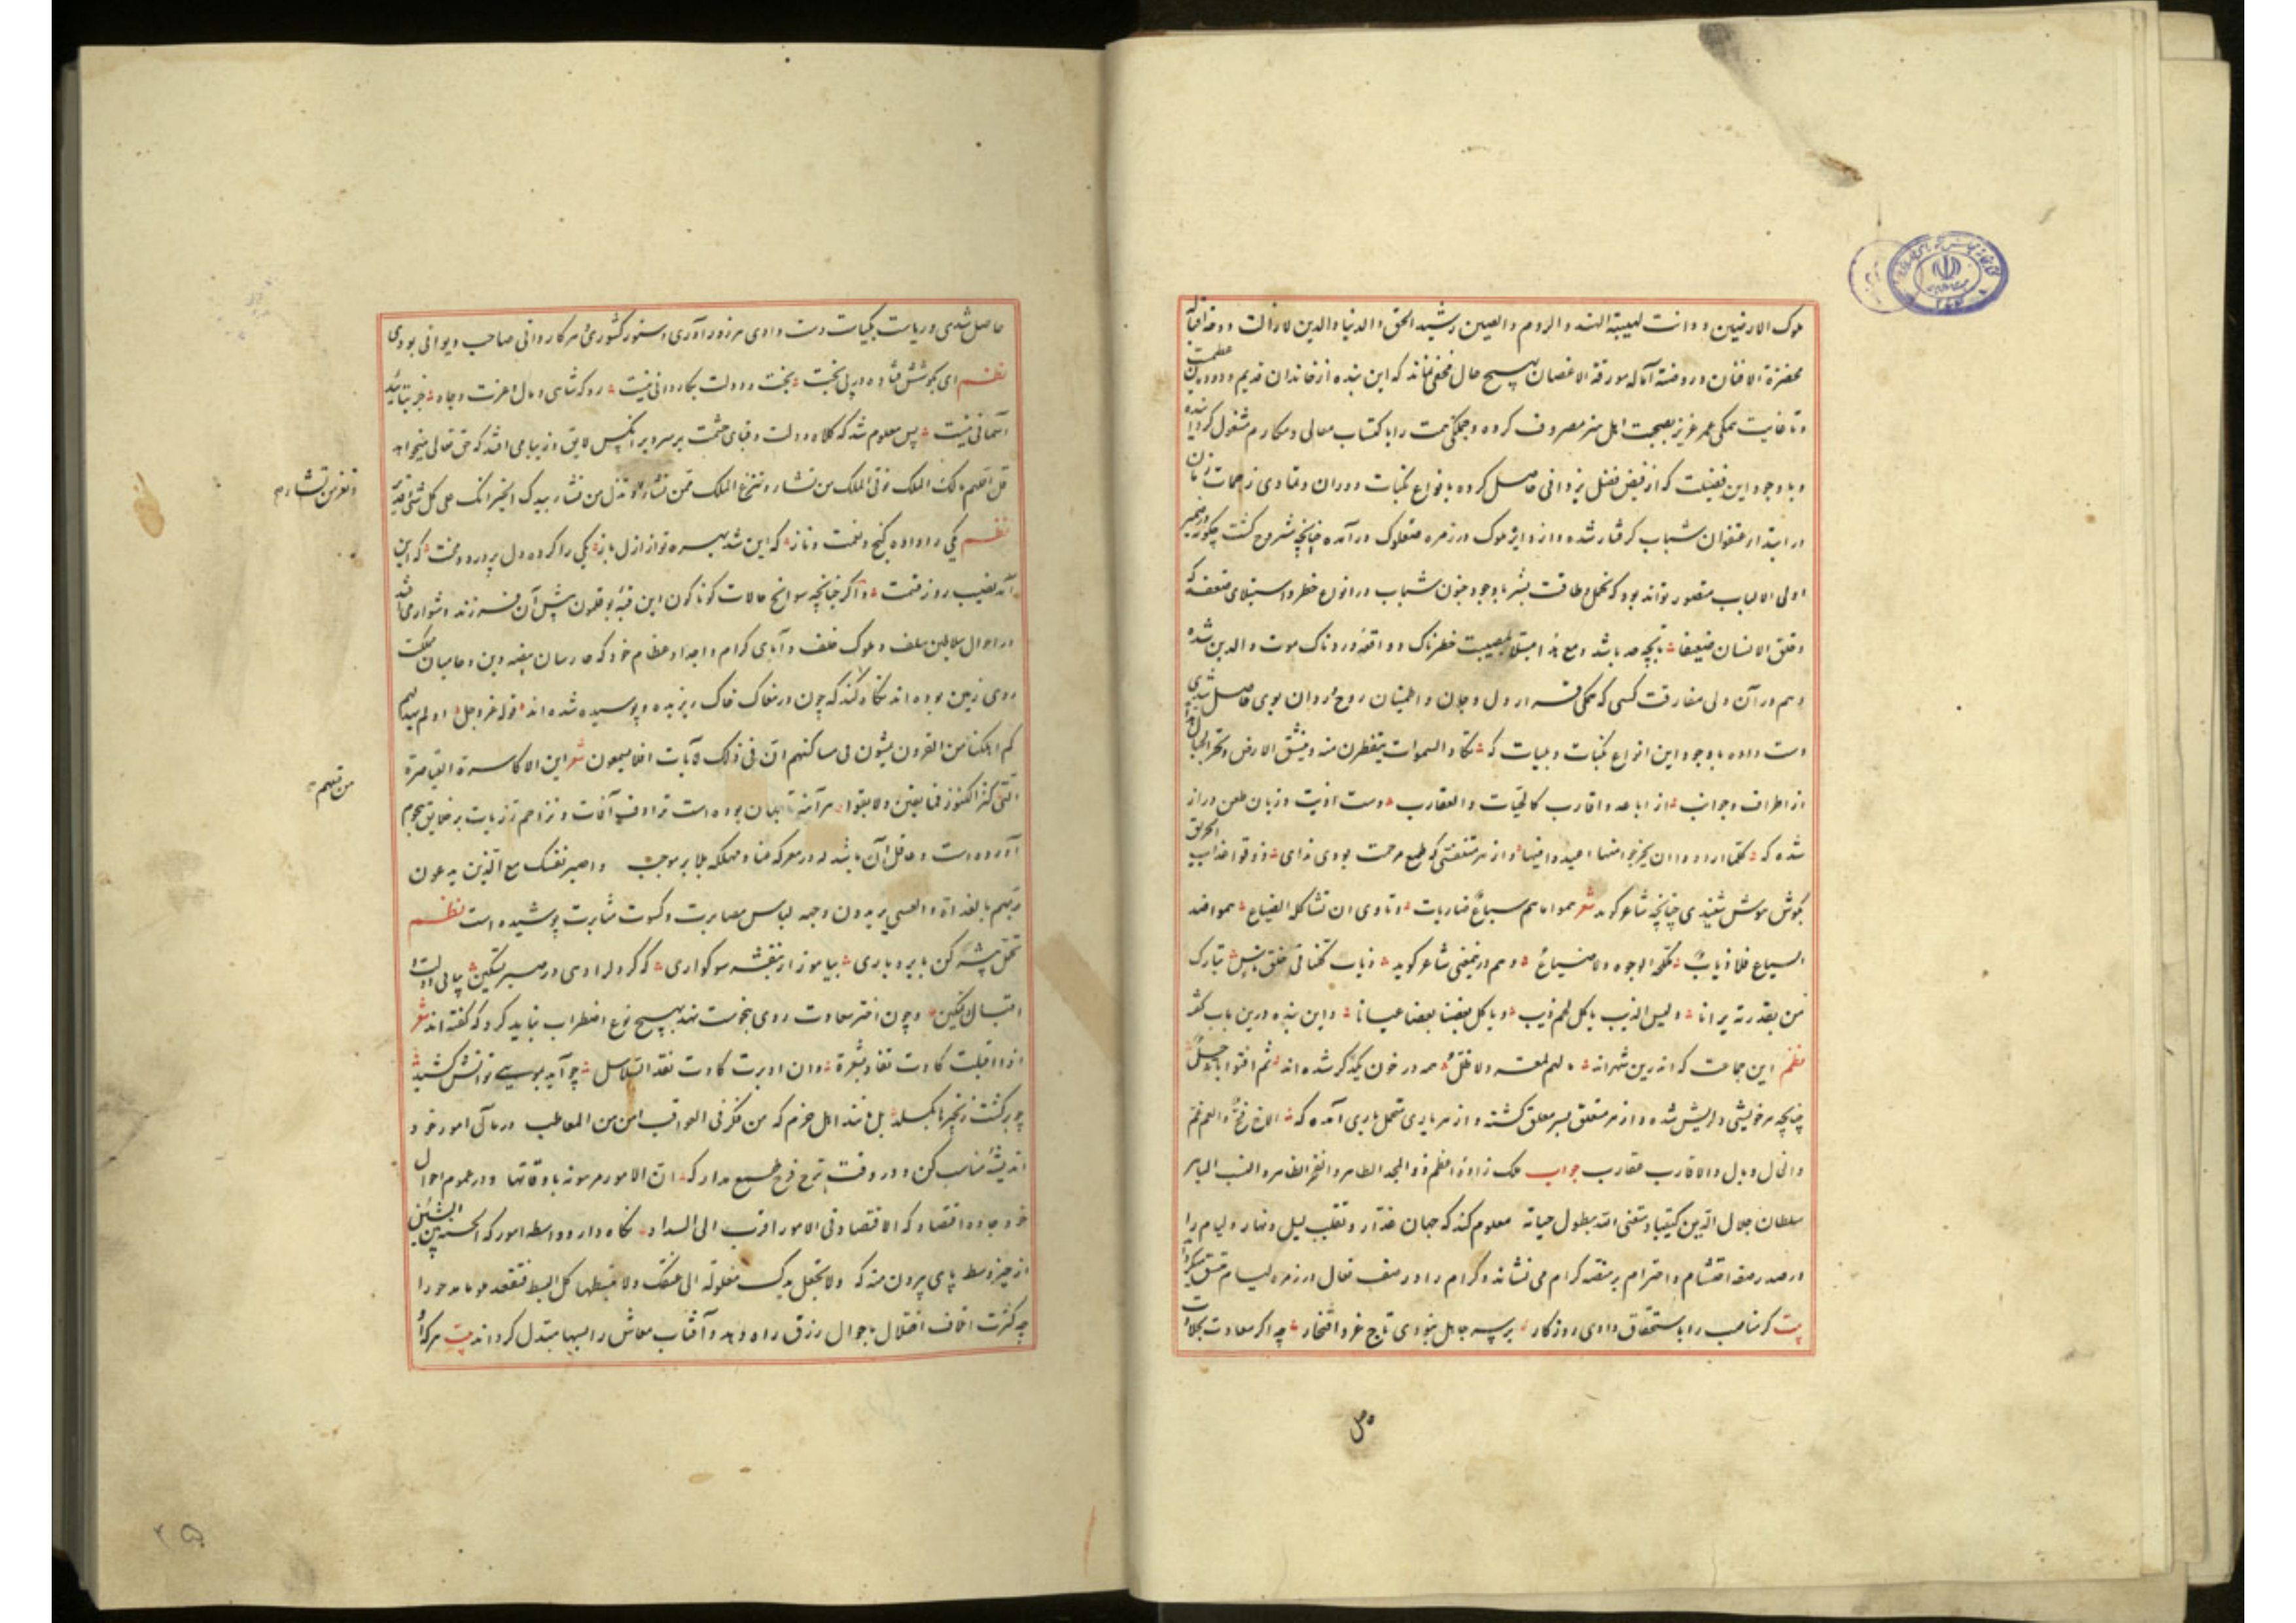 ملوک الارضین و دانت لهیبته الهند و الروم و الصین رشید الحق و الدنیا والدین لازالت دوحه اقباله
مخضرة الافنان و روضة آماله مورقة الاغصان بهیچ حال مخفی نماند که این بنده از خاندان قدیم و دودمان عظمت
و تا غایت همگی عمر عزیز بصحبت اهل هنر مصروف کرده و جملگی همت را باکتساب معالی و مکارم مشغول گردانیده
و با وجود این فضیلت که از فیض فضل یزدانی حاصل کرده بانواع نکبات دوران و تمادی زحمات زمان
در ابتداء عنفوان شباب گرفتار شده و از دایره ملوک در زمره صعلوک درآمده چنانچه مشروح گشت چگونه در ضمیر
اولی الالباب متصور تواند بود که تحمل و طاقت بشر با وجود جنون شباب در انواع خطر و استیلای ضعف که
و خلق الانسان ضعیفا تا بچه حد باشد و مع هذا مبتلا بمصیبت خطرناک و واقعه دردناک موت والدین شده
و هم در آن ولی مفارقت کسی که همگی قرار دل و جان و اطمینان روح و روان بوی حاصل شدی
دست داده با وجود این انواع نکبات و بلیات که تکاد السموات یتفطرن منه و تنشق الارض و تخر الجبال هدا
از اطراف و جوانب از اباعد و اقارب کالحیات و العقارب دست اذیت و زبان طعن دراز
شده که کلما ارادوا ان یخرجوا منها اعیدوا فیها و از هر متنفسی که طمع مرحمت بودی ندای ذوقوا عذاب الحریق
بگوش هوش شنیدی چنانچه شاعر گوید شعر هموا ما هم سباع ضاریات و تاوی ان تشاکله الضباع هموا ضد
السباع فلا ذیاب مکلحة الوجوه ولا ضباع و هم درین معنی شاعر گوید ذیاب کلنا فی خلق ناس تبارک
من بقدرته برانا و لیس الذیب یاکل لحم ذیب و یاکل بعضنا بعضا عیانا و این بنده درین باب گفته
نظم این جماعت که اندرین شهراند مالهم لمعة ولا ظل همه در خون یکدگر شده اند ثم افتوا بانه حل
چنانچه هر خویشی دلریش شده و از هر متعلق بسر معلق گشته و از هر یاری متحمل باری آمده که الاخ فخ و العم غم
و الخال وبال و الاقارب عقارب جواب ملک زاده اعظم ذو المجد الطاهر و الفخر الظاهر و النسب الباهر
سلطان جلال الدین کیقباد متعنی الله بطول حیاته معلوم کند که جهان غدار و تقلب لیل و نهار و لیام را
در صدر صفه احتشام و احترام بر منصه کرام می نشاند و کرام را در صف نعال از زمره لیام
بیت گر مناصب را باستحقاق دادی روزگار بر سر جاهل نبودی تاج عز و افتخار چه اگر سعادت بجلادت
حاصل شدی و ریاست بکیاست دست دادی هر زورآوری دستور کشوری و هر کاردانی صاحب دیوانی بودی
نظم ای بکوشش فتاده در پی بخت بخت و دولت بکاردانی نیست رو که شاهی و مال و عزت و جاه جز بتائید
آسمانی نیست پس معلوم شد که کلاه دولت و قبای حشمت بر سر و بر آنکس لایق و زیبا می افتد که حق تعالی میخواهد
قل اللهم مالک الملک توتی الملک من تشاء و تنزع الملک ممن تشاء و تذل من تشاء بیدک الخیر انک علی کل شئ قدیر
و تعز من تشاء م
نظم یکی را داده گنج و نعمت و ناز که این شد بهره تو از ازل باز یکی را کرده دل پر درد و محنت که این
آمد نصیب روز قسمت و اگر چنانچه سوانح حالات گوناگون این قبه بوقلمون پیش آن فرزند دشوار می افتد
در احوال سلاطین سلف و ملوک خلف و آبای کرام و اجداد عظام خود که حارسان بیضه دین و حامیان مملکت
روی زمین بوده اند نگاه کند که چون در مغاک خاک ریزیده و پوسیده شده اند قوله عز و جل اولم یهد لهم
کم اهلکنا من القرون یمشون فی مساکنهم ان فی ذلک لآیات افلا یسمعون شعر این الاکاسرة القیاصرة
من قبلهم
التی کنز الکنوز فما بقین ولا بقوا هر آینه تا جهان بوده است ترادف آفات و تزاحم رزیات بر خلایق هجوم
آورده است و عاقل آن باشد که در معرکه عنا و مهلکه بلا بر موجب و اصبر نفسک مع الذین یدعون
ربهم بالغداة و العشی یریدون وجهه لباس مصابرت و کسوت مثابرت پوشیده است نظم
تحمل پیشه کن با بردباری بیاموز از بنفشه سوکواری که گر دل را دهی در صبر تسکین بیابی دولت
اقبال و تمکین و چون اختر سعادت روی بنحوست نهد بهیچ نوع اضطراب نباید کرد که گفته اند شعر
اذا اقبلت کادت تقاد بشعرة و ان ادبرت کادت تقد السلاسل چو آید بمویی توانش کشید
چو برگشت زنجیرها بگسلد اهل حزم که من فکر فی العواقب امن من المعاطب در مآل امور خود
اندیشه مناسب کن و در وقت ترح فرح طمع مدار که ان الامور مرهونة باوقاتها و در عموم احوال
خود جاده اقتصاد که الاقتصاد فی الامور اقرب الی السداد نگاه دار و واسطه امور که الحسنة بین السیئتین
از حیز وسط پای بیرون منه که ولا تجعل یدک مغلولة الی عنقک ولا تبسطها کل البسط فتقعد ملوما محسورا
چه کثرت اتلاف اختلال باحوال رزق راه دهد و آفتاب معاش را بسها مبتدل گرداند بیت هر که او